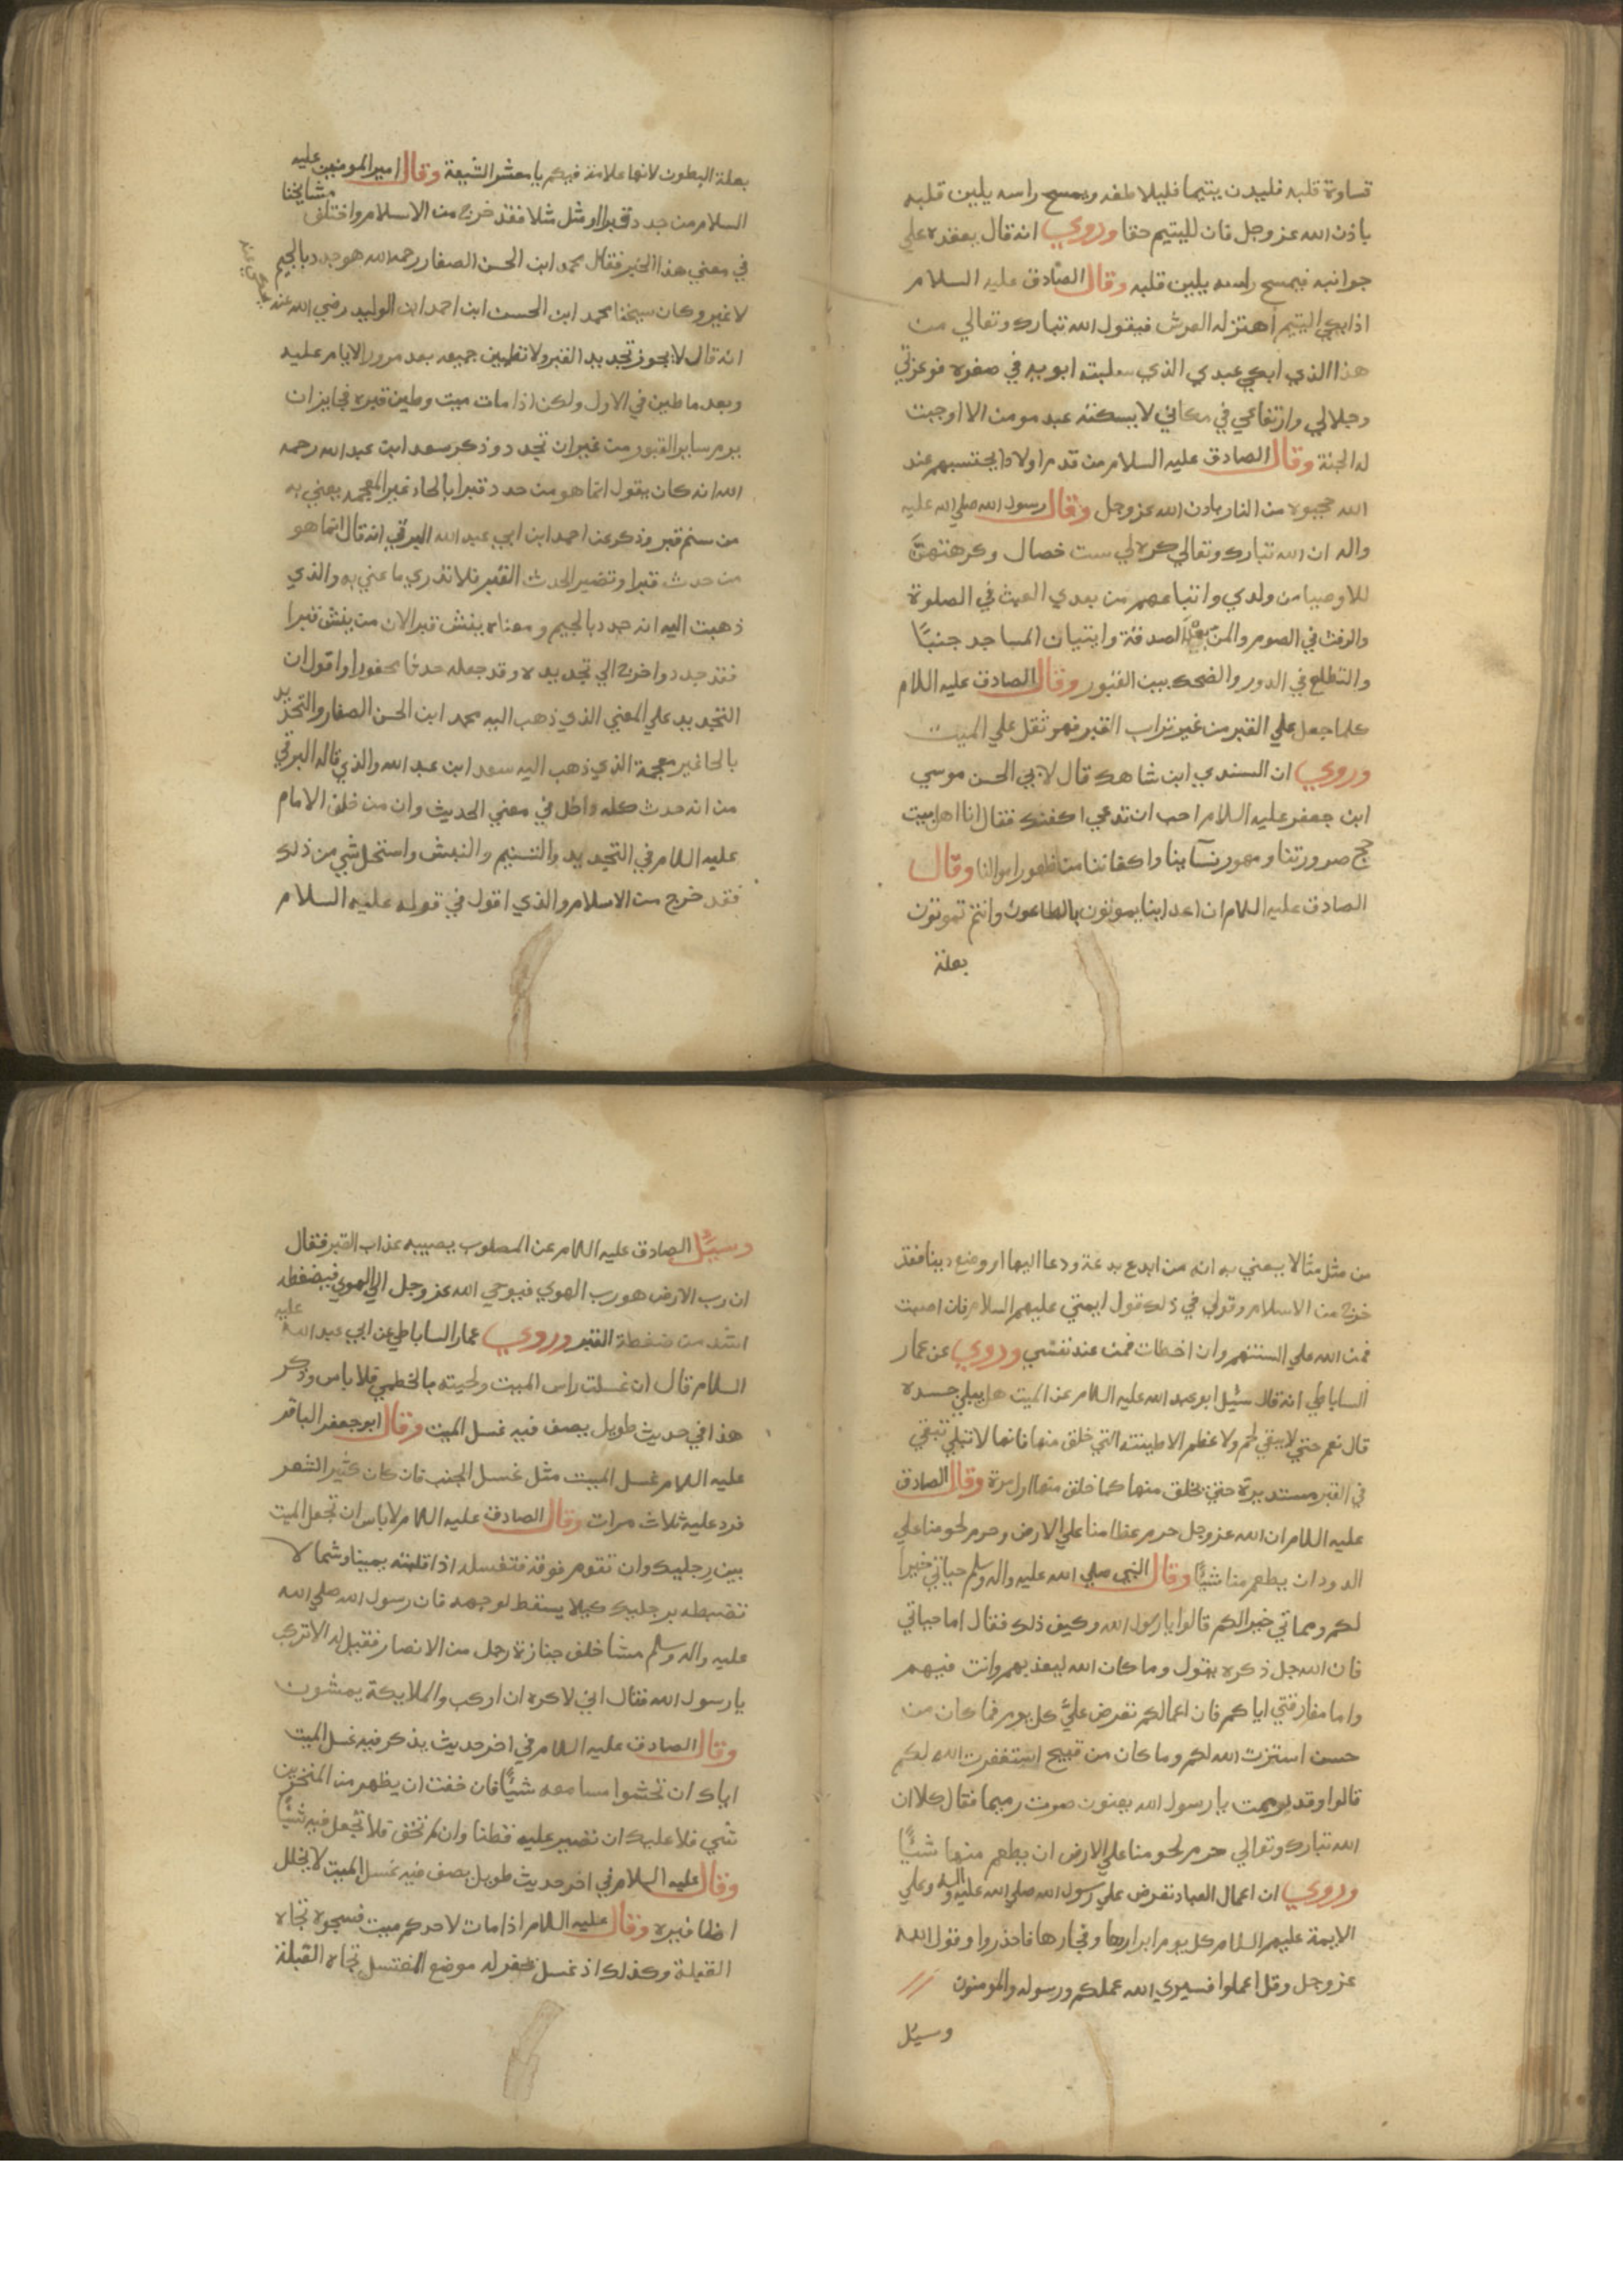 قساوة قلبه فليدن يتيما فليلاطفه ويمسح راسه يلين قلبه
باذن الله عز وجل فان لليتيم حقا وروي انه قال يقعده علي
جوانبه فيمسح راسه يلين قلبه وقال الصادق عليه السلام
اذا بكي اليتيم اهتز له العرش فيقول الله تبارك وتعالي من
هذا الذي ابكي عبدي الذي سلبته ابويه في صغره فوعزتي
وجلالي وارتفاعي في مكاني لا يسكته عبد مومن الا اوجبت
له الجنة وقال الصادق عليه السلام من قدم اولادا يحتسبهم عند
الله حجبوه من النار باذن الله عز وجل وقال رسول الله صلي الله عليه
واله ان الله تبارك وتعالي كره لي ست خصال وكرهتهن
للاوصيا من ولدي واتباعهم من بعدي العبث في الصلوة
والرفث في الصوم والمن بعد الصدقة وايتيان المساجد جنبًا
والتطلع في الدور والضحك بين القبور وقال الصادق عليه اللام
كلما جعل علي القبر من غير تراب القبر فهو ثقل علي الميت
وروي ان السندي ابن شاهك قال لابي الحسن موسي
ابن جعفر عليه اللام احب ان تدعي اكفنك فقال انا اهل بيت
حج صرورتنا ومهور نسآينا واكفاننا من طهور اموالنا وقال
الصادق عليه اللام ان اعداينا يموتون بالطاعون وانتم تموتون
بعلة
بعلة البطون لانها علامة فيكم يا معشر الشيعة وقال امير المومنين عليه
السلام من جدد قبرا او مثل مثلا فقد خرج من الاسلام واختلف مشايخنا
في معني هذا الخبر فقال محمد ابن الحسن الصفار رحمه الله هو جدد بالجيم
لا غير وكان شيخنا محمد ابن الحسن ابن احمد ابن الوليد رضي الله عنه
انه قال لا يجوز تجديد القبر ولا تطيين جميعه بعد مرور الايام عليه
وبعد ما طين في الاول ولكن اذا مات ميت وطين قبره فجايز ان
يرم ساير القبور من غير ان تجدد وذكر سعد ابن عبد الله رحمه
الله انه كان يقول انما هو من حدد قبرا بالحاء غير المعجمه يعني به
من سنم قبر وذكر عن احمد ابن ابي عبد الله البرقي انه قال انما هو
من حدث قبرا وتفسير الحدث القبر فلا تدري ما عني به والذي
ذهبت اليه انه جدد بالجيم ومعناه ينبش قبر الان من ينبش قبرا
فقد جدد واخرج الي تجديده وقد جعله حدثا محفورا واقول ان
التجديد علي المعني الذي ذهب اليه محمد ابن الحسن الصفار والتحديد
بالحا غير معجمة الذي ذهب اليه سعد ابن عبد الله والذي قاله البرقي
من انه حدث كله داخل في معني الحديث وان من خالف الامام
عليه اللام في التجديد والتسنيم والنبش واستحل شي من ذلك
فقد خرج من الاسلام والذي اقول في قوله عليه السلام
من مثل مثالا يعني به انه من ابدع بدعة ودعا اليها او وضع دينا فقد
خرج من الاسلام وقولي في ذلك قول ايمتي عليهم السلام فان اصبت
فمن الله علي السنتهم وان اخطات فمن عند نفسي وروي عن عمار
الساباطي انه قال سئيل ابو عبد الله عليه اللام عن الميت هل يبلي جسده
قال نعم حتي لا يبقي لحم ولا عظم الا طينته التي خلق منها فانها لا تبلي تبقي
في القبر مستديرة حتي يخلق منها كما خلق منها اول مرة وقال الصادق
عليه اللام ان الله عز وجل حرم عظامنا علي الارض وحرم لحومنا علي
الدود ان يطعم منا شيئًا وقال النبي صلي الله عليه واله وسلم حياتي خيرا
لكم ومماتي خيرا لكم قالوا يا رسول الله وكيف ذلك فقال اما حياتي
فان الله جل ذكره يقول وما كان الله ليعذبهم وانت فيهم
واما مفارقتي اياكم فان اعمالكم تعرض عليّ كل يوم فما كان من
حسن استزت الله لكم وما كان من قبيح استغفرت الله لكم
قالوا وقد يا رسول الله يعنون صرت رميما فقال كلا ان
الله تبارك وتعالي حرم لحومنا علي الارض ان يطعم منها شيئًا
وروي ان اعمال العباد تعرض علي رسول الله صلي الله عليه واله وعلي
الايمة عليهم السلام كل يوم ابرارها وفجارها فاحذروا وقول الله
عز وجل وقل اعملوا فسيري الله عملكم ورسوله والمومنون
وسيئل
وسيئل الصادق عليه اللام عن المصلوب يصيبه عذاب القبر فقال
ان رب الارض هو رب الهوي فيوحي الله عز وجل الي الهوي فيضغطه
اشد من ضغطة القبر وروي عمار الساباطي عن ابي عبد الله عليه
السلام قال ان غسلت راس الميت ولحيته بالخطمي فلا باس وذكر
هذا في حديث طويل يصف فيه غسل الميت وقال ابو جعفر الباقر
عليه اللام غسل الميت مثل غسل الجنب فان كان كثير الشعر
فرد عليه ثلاث مرات وقال الصادق عليه اللام لا باس ان تجعل الميت
بين رجليك وان تقوم فوقه فتغسله اذا قلبته يمينا وشمالا
تضبطه برجليك كيلا يسقط لوجهه فان رسول الله صلي الله
عليه واله وسلم مشا خلف جنازة رجل من الانصار فقيل له الا تركب
يا رسول الله فقال اني لاكره ان اركب والملايكة يمشون
وقال الصادق عليه اللام في اخر حديث يذكر فيه غسل الميت
اياك ان تحشوا مسامعه شيئًا فان خفت ان يظهر من المنخرين
شي فلا عليك ان تصير عليه قطنا وان لم تخف فلا تجعل فيه شيئًا
وقال عليه السلام في اخر حديث طويل يصف فيه غسل الميت لا تخلل
اظافيره وقال عليه اللام اذا مات لاحدكم ميت فسجوه تجاه
القبلة وكذلك اذ غسل يحفر له موضع المغتسل تجاه القبلة